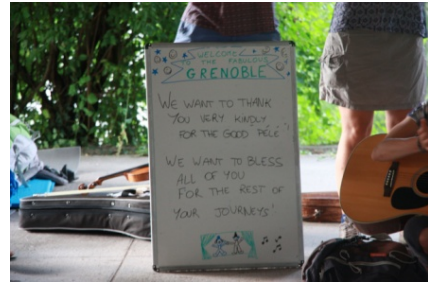 WELCOME
TO THE FABULOUS
GRENOBLE
WE WANT TO THANK
YOU VERY KINDLY
FOR THE GOOD PÉLÉ!
WE WANT TO BLESS
ALL OF YOU
FOR THE REST OF
YOUR JOURNEYS!